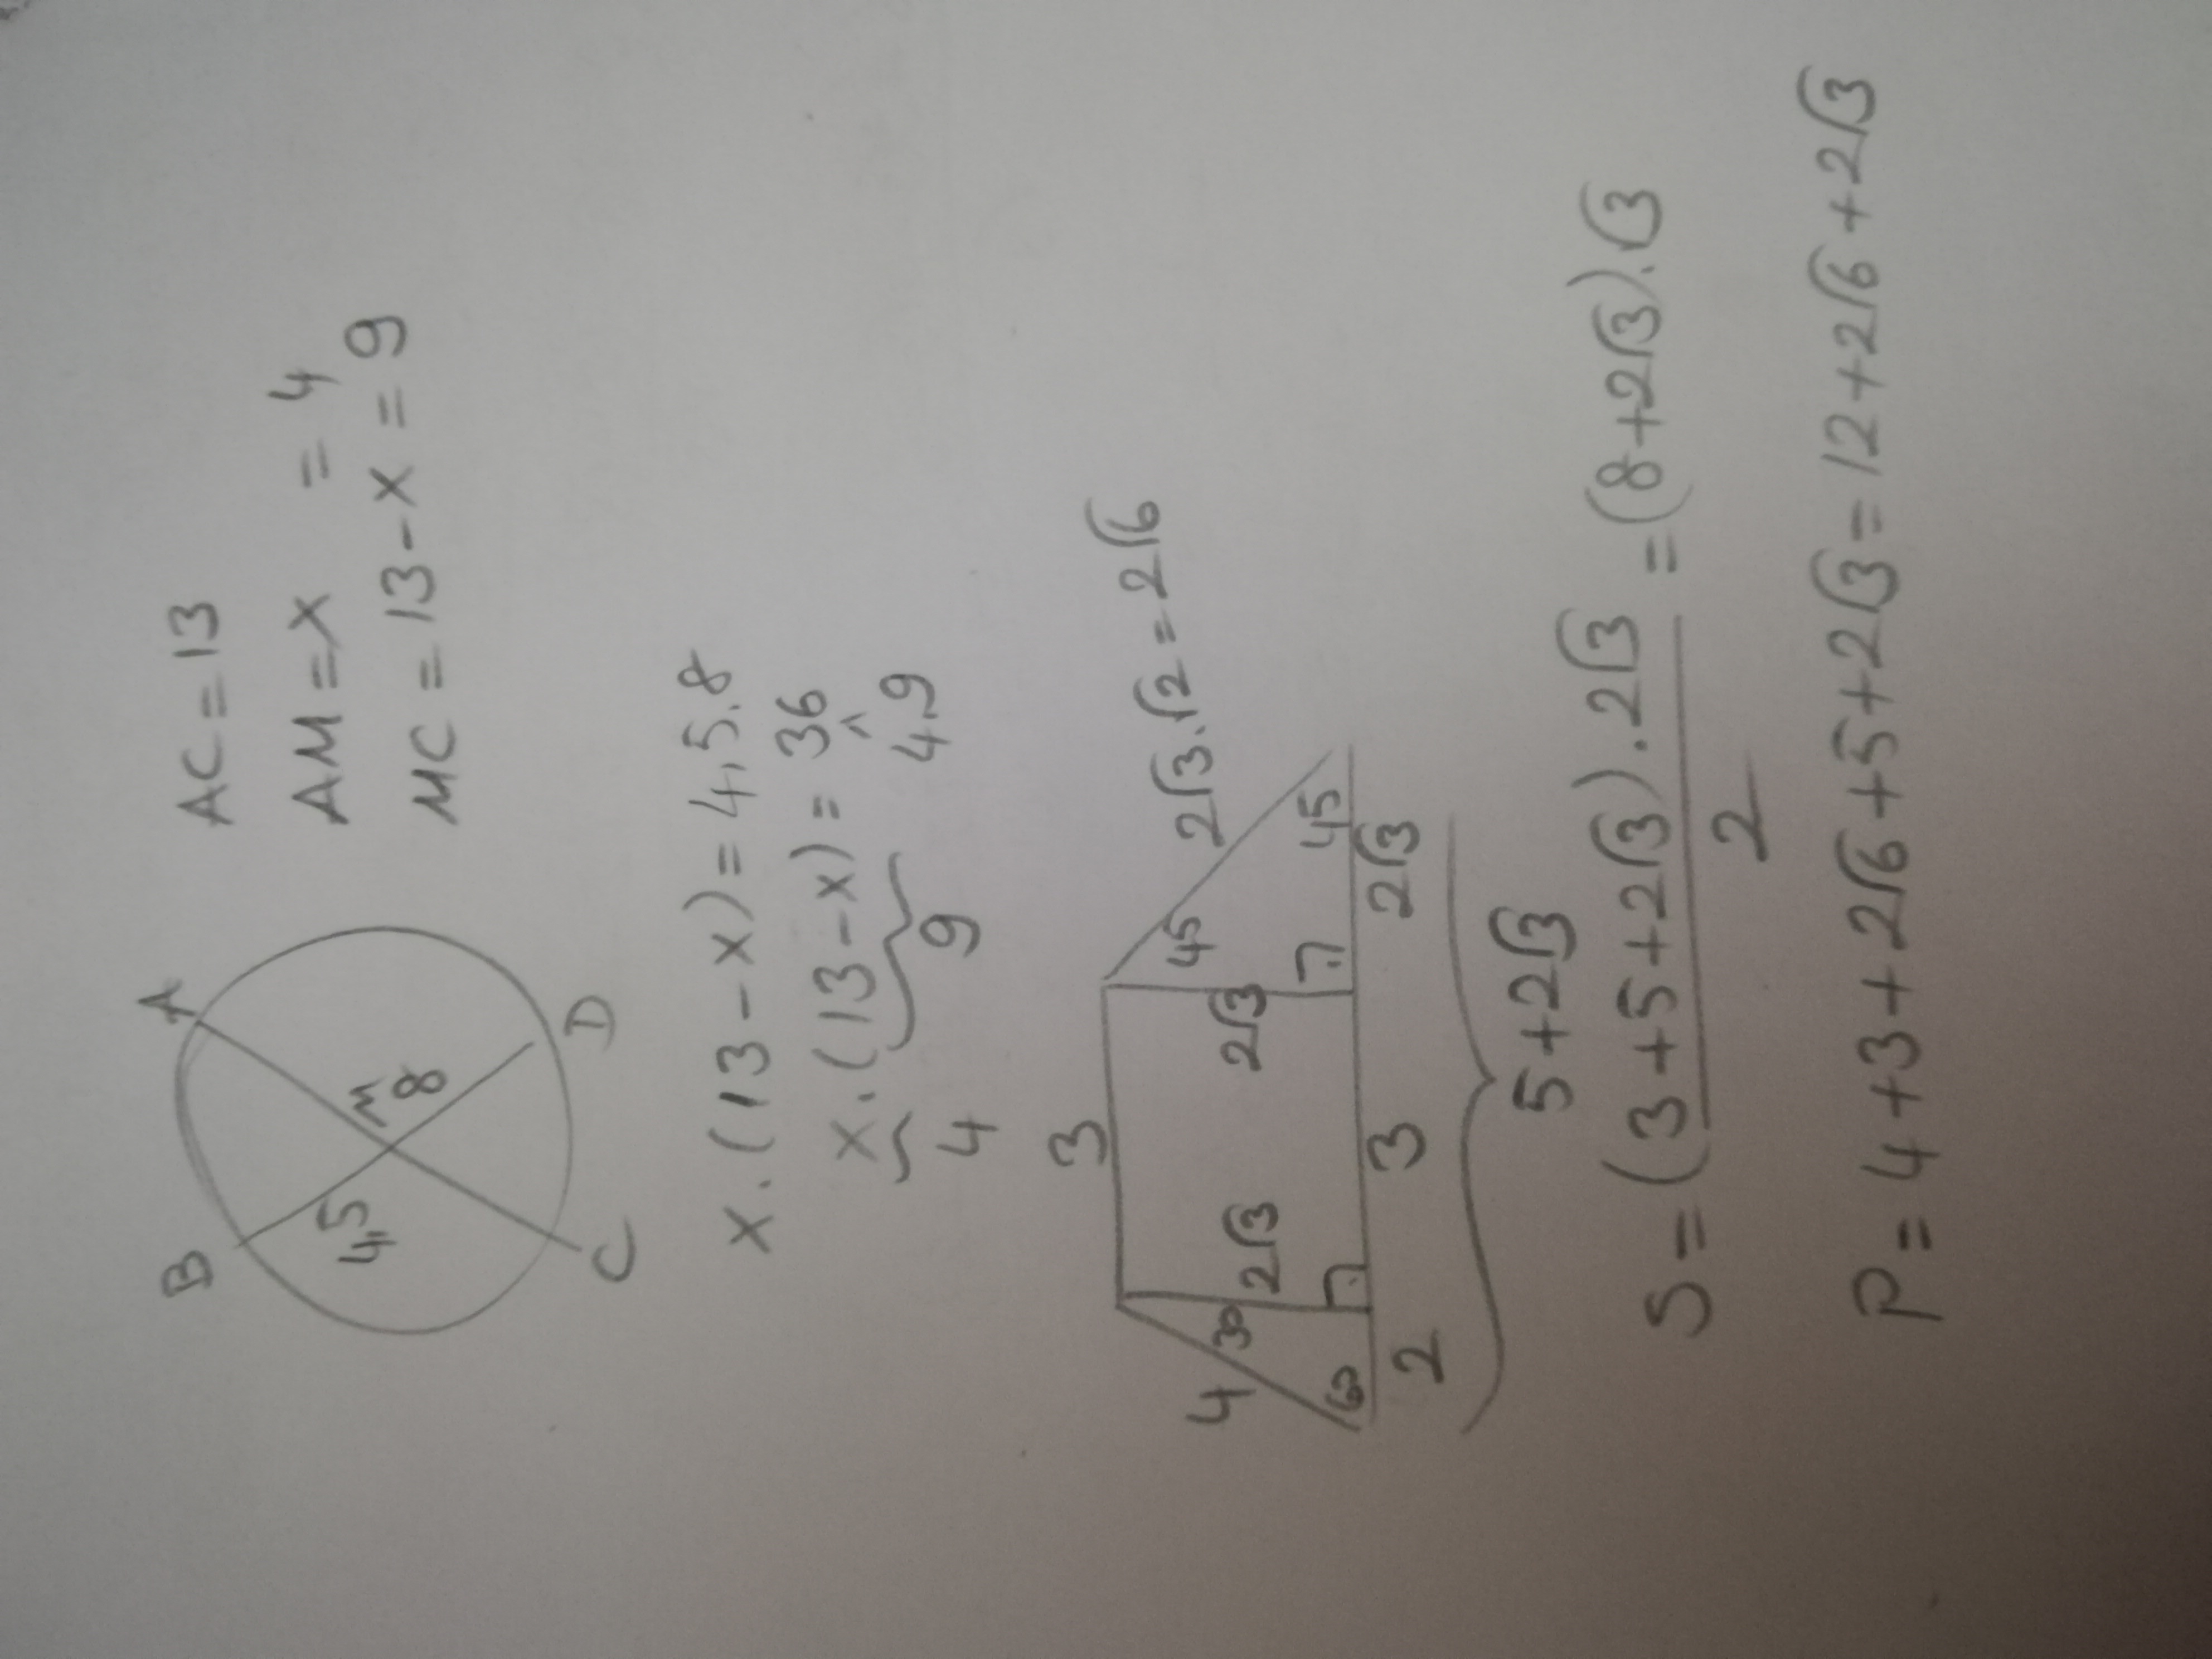 A
B
M
4,5
8
C
D
AC = 13
AM = x = 4
MC = 13 - x = 9
x . (13 - x) = 4,5 . 8
x . (13 - x) = 36
4 9 4.9
3
4 30 2√3 2√3 45 2√3.√2 = 2√6
60 45
2 3 2√3
5 + 2√3
S = (3 + 5 + 2√3) . 2√3 / 2 = (8 + 2√3).√3
P = 4 + 3 + 2√6 + 5 + 2√3 = 12 + 2√6 + 2√3